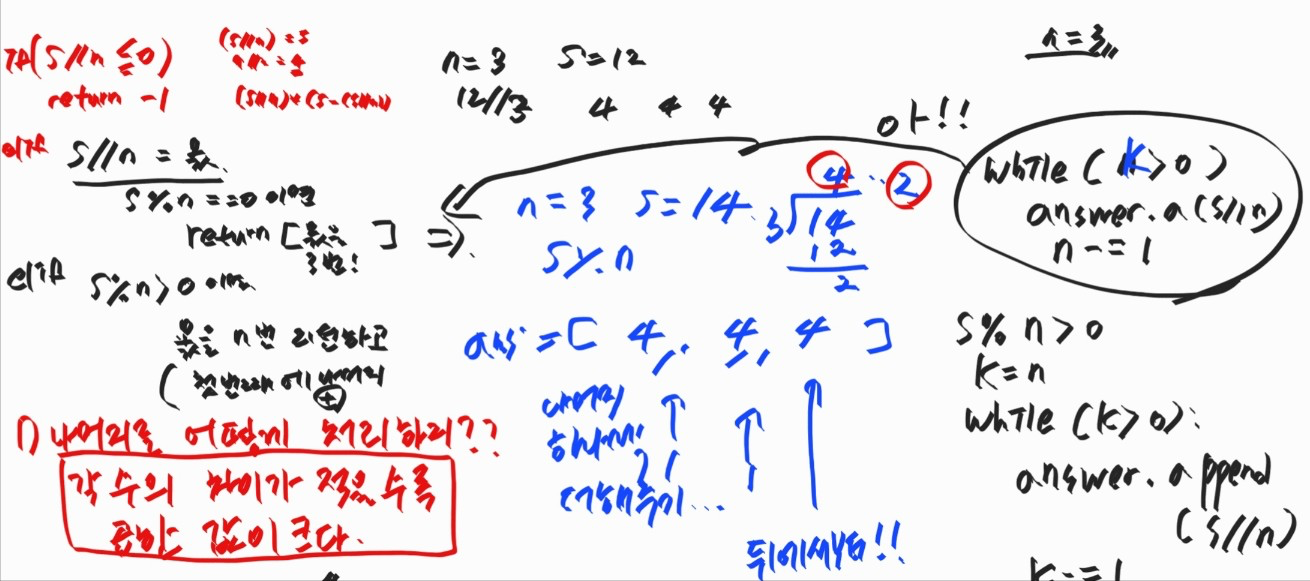 (S//n ≤ 0)
return -1
S//n = 몫
S%n == 0 이면
return [몫을 ]
3번!
S%n > 0 이면
몫을 n번 리턴하고
1) 나머지를 어떻게 처리하리??
각 수의 차이가 적을수록
곱하는 값이 크다.
n=3 S=12
12//3 4 4 4
아!!
n=3 S=14
S%n
4 ... 2
3 14
12
2
ans = [ 4, 4, 4 ]
나머지
하나씩
더해주기...
뒤에서부터!!
n=3
while (k>0)
answer.a(S//n)
n -= 1
S% n > 0
k=n
while (k>0):
answer.append
(S//n)
k -= 1